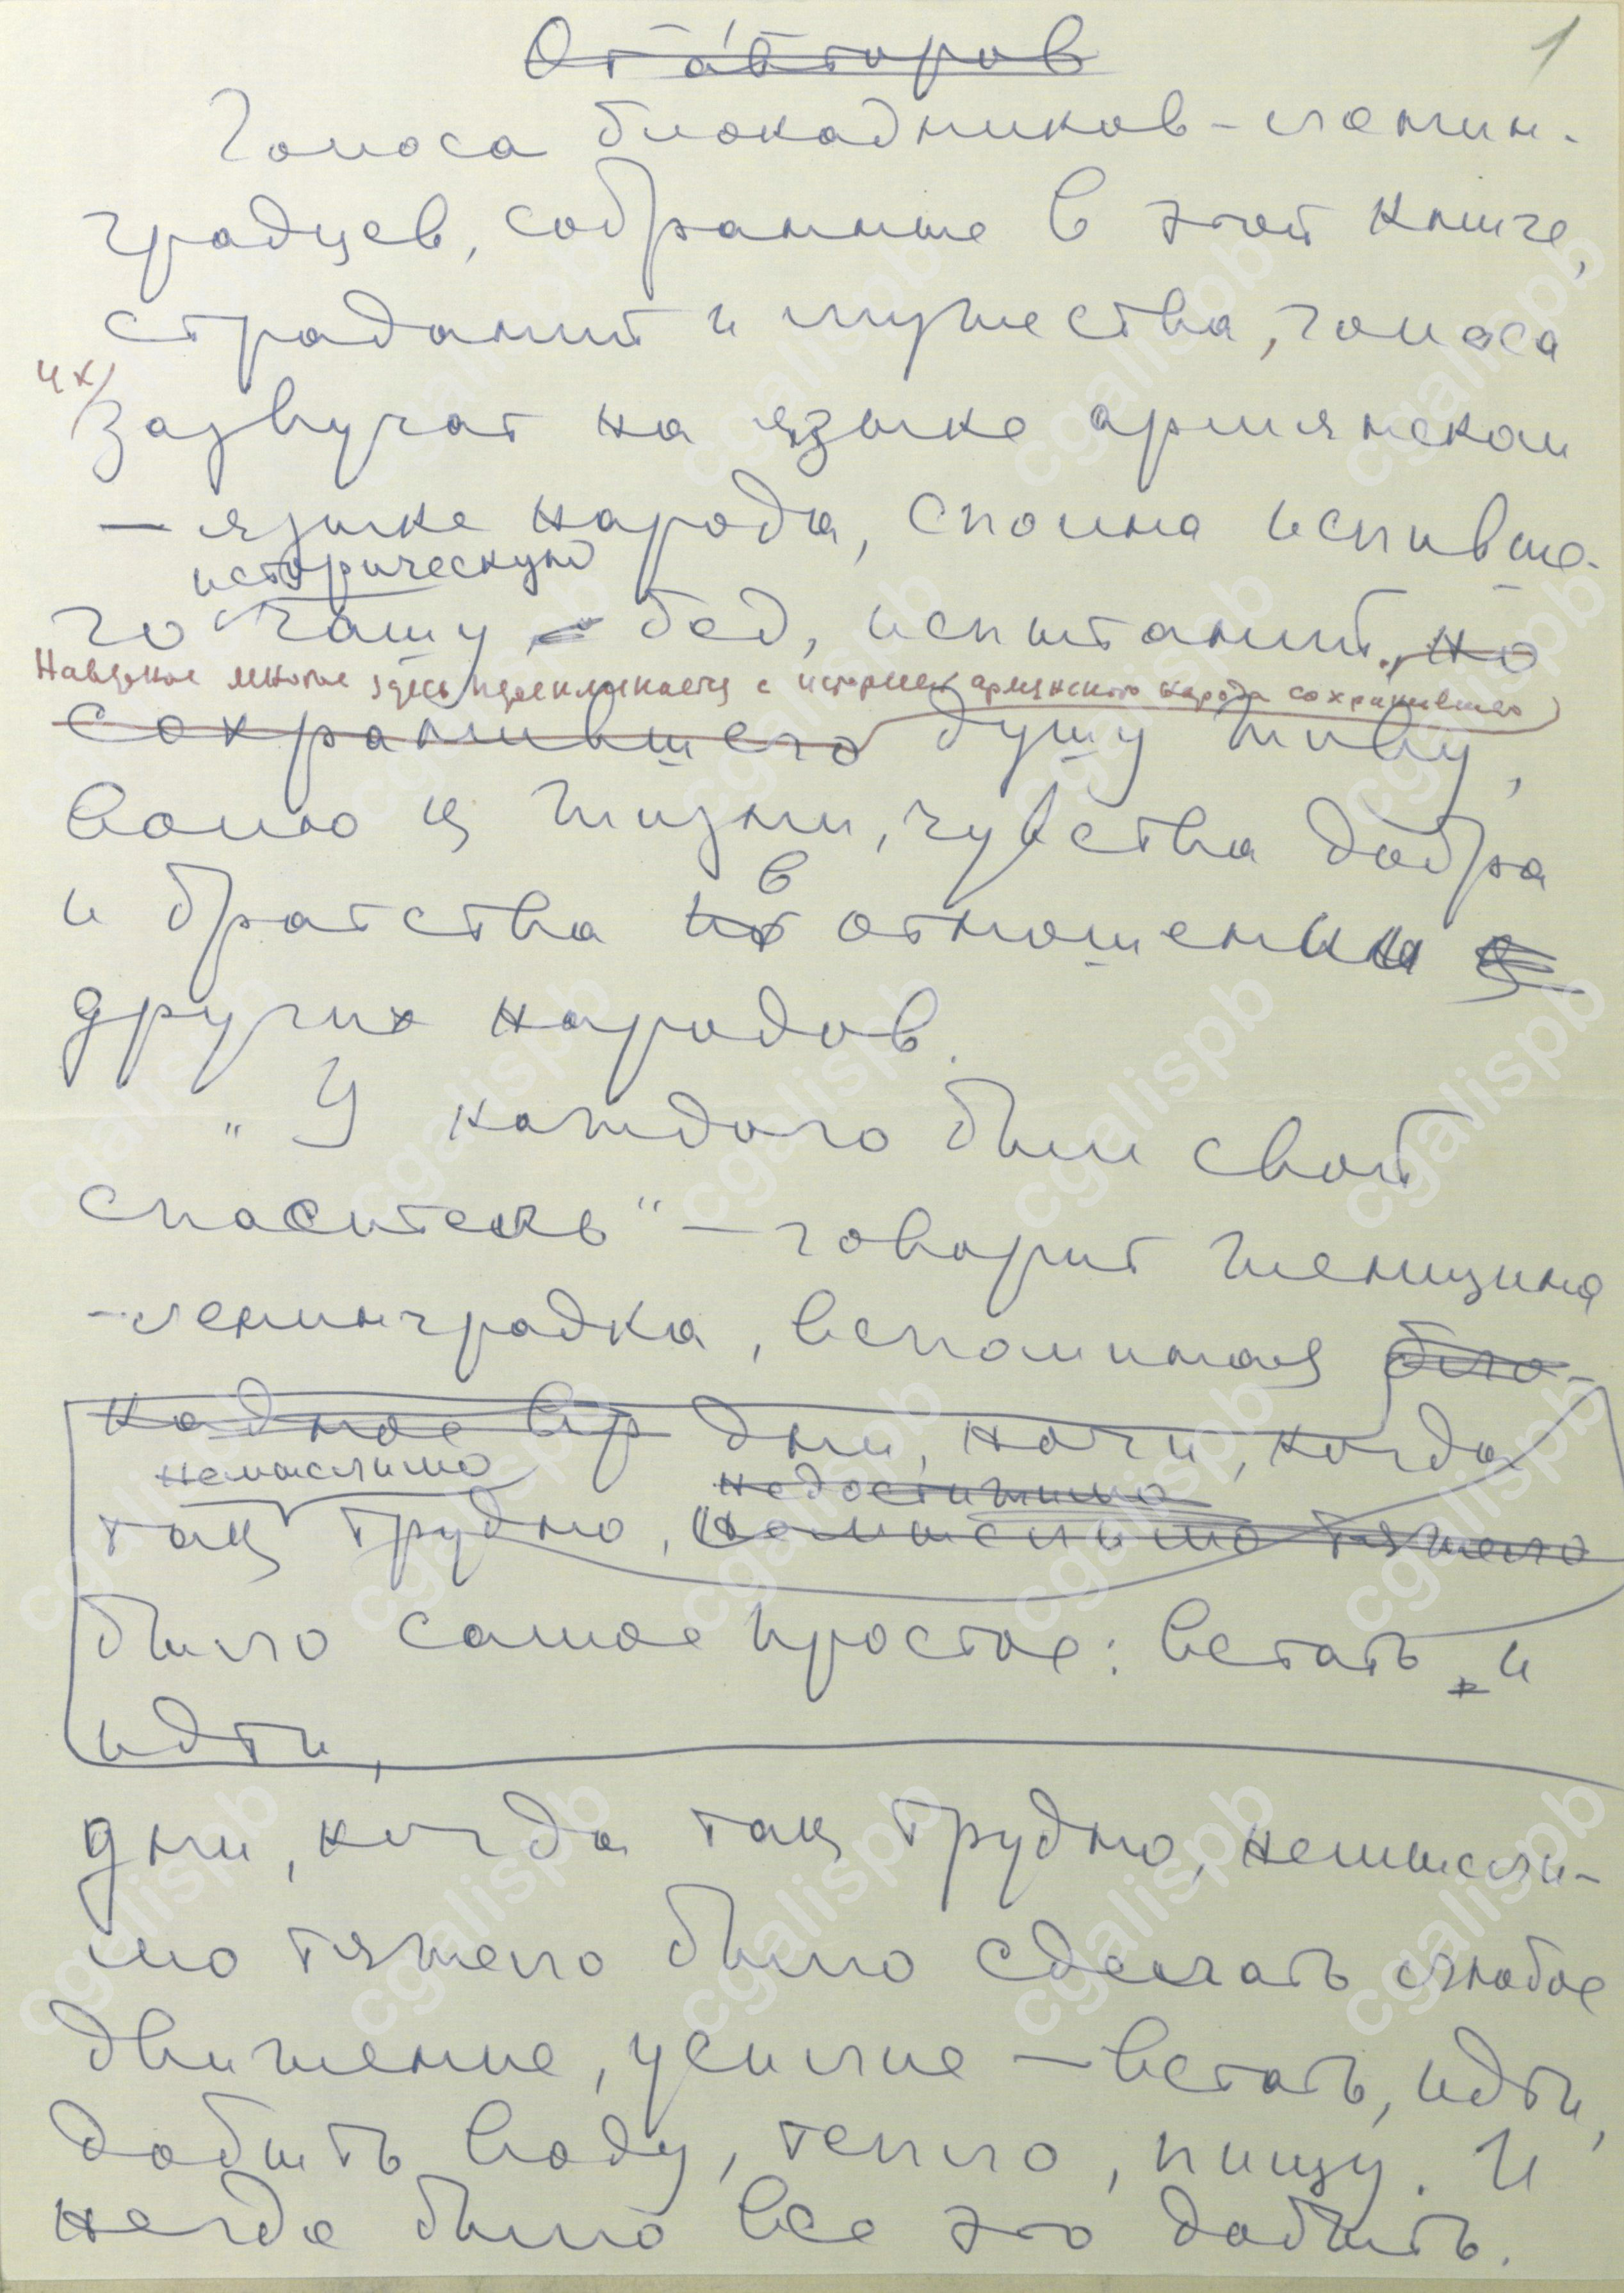 От авторов
1
Голоса блокадников-ленин-
градцев, собранные в этой книге,
страданий и мужества, голоса
их
зазвучат на языке армянском
– языке народа, сполна испивше-
историческую
го чашу бед, испытаний, но
Навязное многое здесь перекликается с историей армянского народа сохранившего
сохранившего душу живу,
волю к жизни, чувства добра
в
и братства по отношении к
других народов.
"У каждого был свой
спаситель" – говорит женщина
-ленинградка, вспоминая бло-
кадное вр дни, ночи, когда
немыслимо недостижимо
так трудно, немыслимо тяжело
было самое простое: встать и
идти,
дни, когда так трудно, немысли-
мо тяжело было сделать любое
движение, усилие – встать, идти,
добыть воду, тепло, пищу. И
негде было все это добыть.